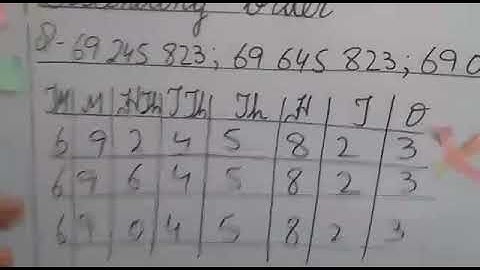 Order
8- 69 245 823; 69 645 823; 69 0
TM M HTh TTh Th H T O
6 9 2 4 5 8 2 3
6 9 6 4 5 8 2 3
6 9 0 4 5 8 2 3